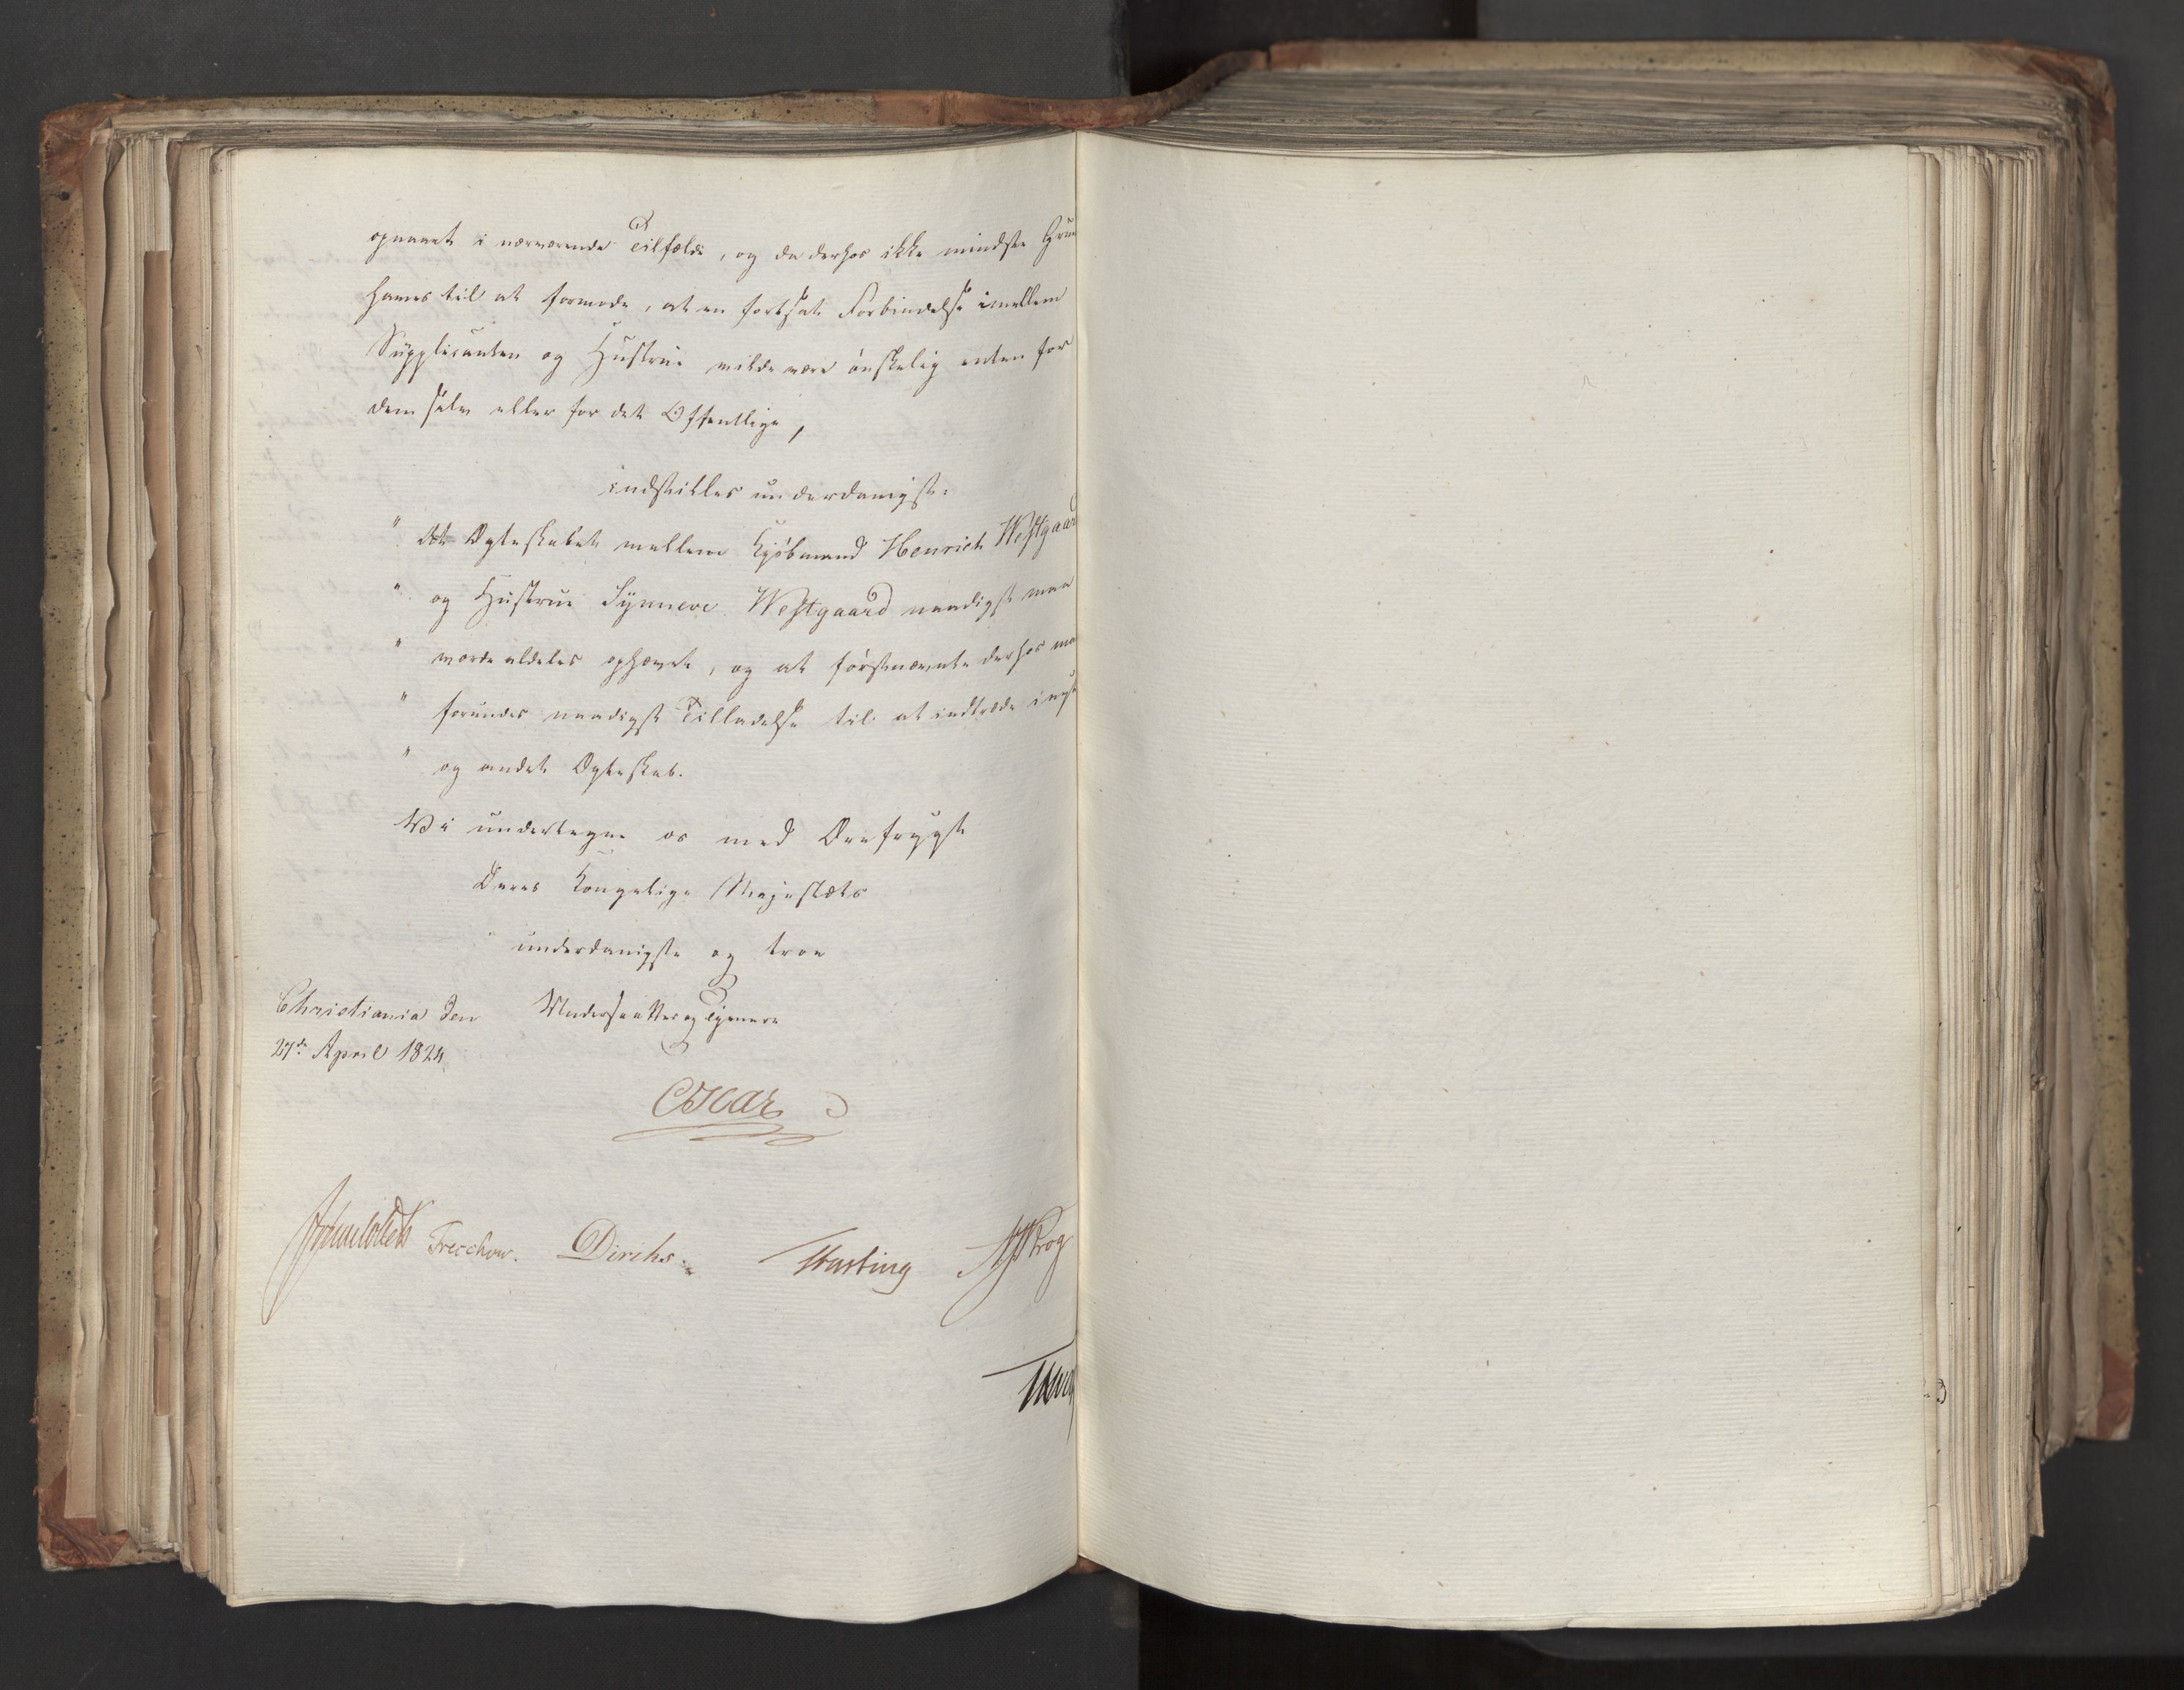 opnaaet i nærværende Tilfælde, og da derhos ikke mindste Grun
haves til at formode, at en fortsat Forbindelse imellem
Supplicanten og Hustrue vilde være ønskelig enten for
dem selv eller for det Offentlige,
indstilles underdanigst:
" At Ægteskabet mellem Kjøbmand Henrich Westgaard
" og Hustrue Synneve Westgaard naadigst maa
" vorde aldeles ophævet, og at førstnævnte derhos maa
" forundes naadigst Tilladelse til at indtræde i nyt
" og andet Ægteskab.
Vi undertegne os med Ærefrygt
Deres Kongelige Majestæts
underdanigste og troe
Christiania den Undersaatter og Tjenere
27de April 1824.
Oscar
Treschow. Diriks. AJKrog